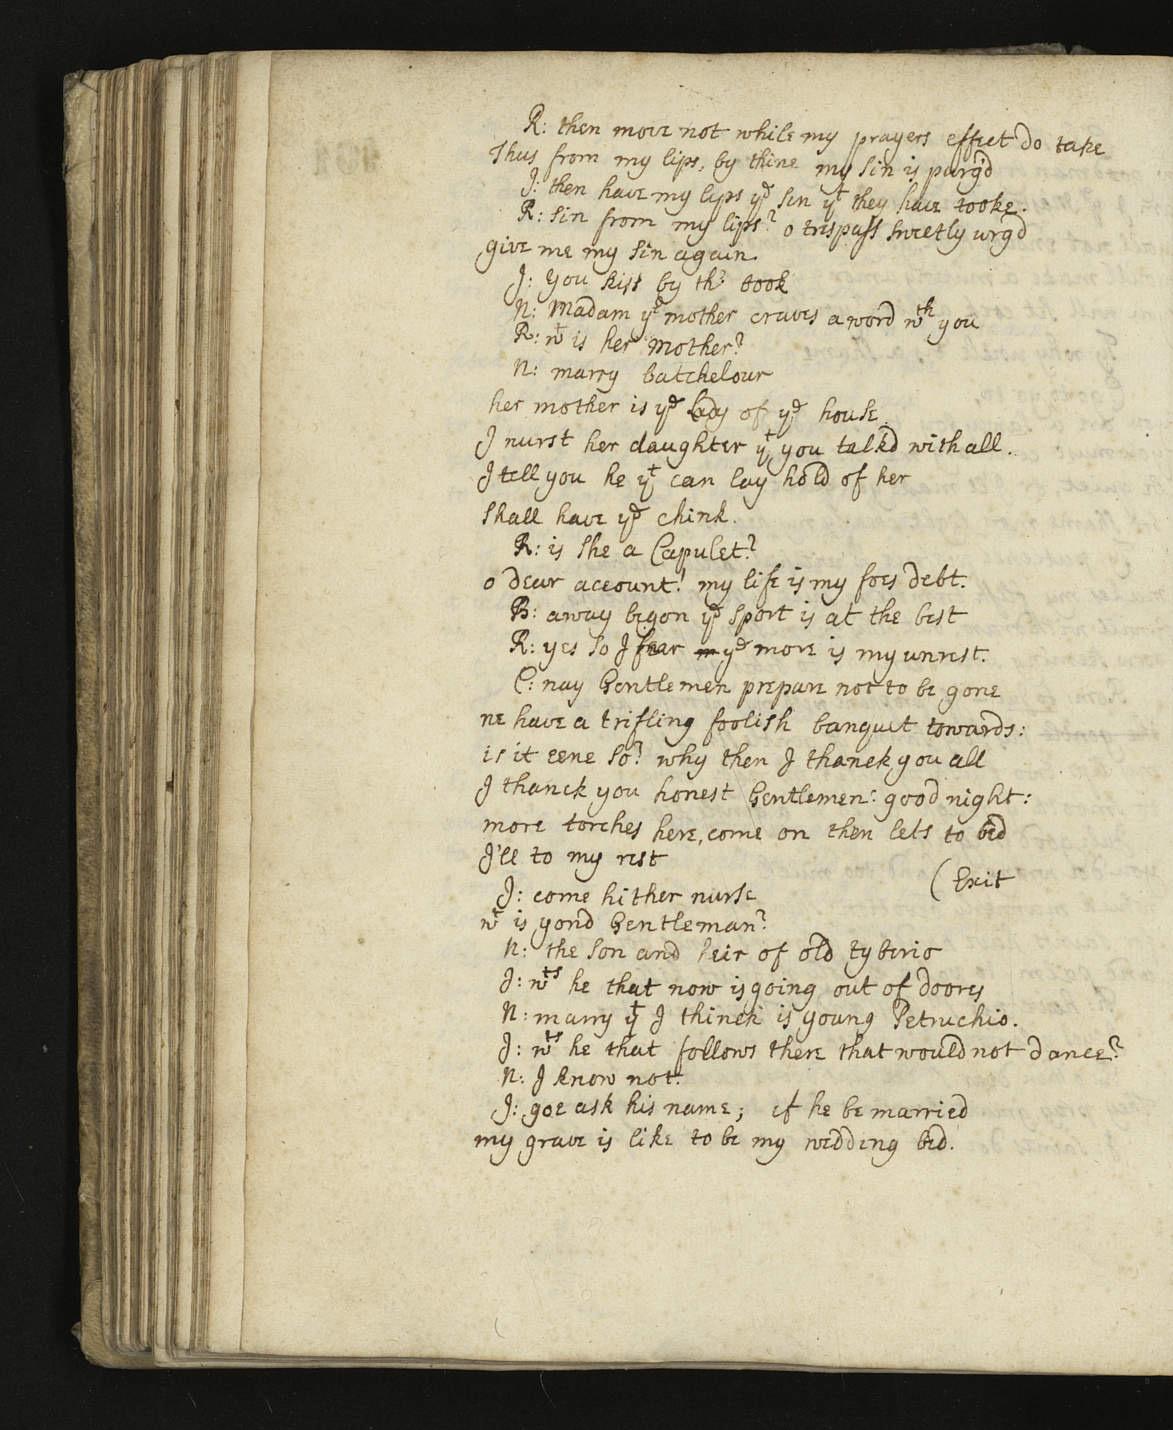 R: then move not while my prayers effect do take
Thus from my lips, by thine my sin is purg'd
J: then have my lips yᵉ sin yᵗ they have tooke.
R: sin from my lips? o trespass sweetly urg'd
give me my sin again.
J: you kiss by thᵉ book
N: Madam yʳ mother craves a word wᵗʰ you
R: wᵗ is her Mother?
N: marry batchelour
her mother is yᵉ lady of yᵉ house.
I nurst her daughter yᵗ you talk'd withall.
I tell you he yᵗ can lay hold of her
shall have yᵉ chink.
R: is she a Capulet?
o dear account! my life is my foes debt.
B: away begon yᵉ sport is at the best
R: yes so I fear yᵉ more is my unrest.
C: nay Gentlemen prepare not to be gone
we have a trifling foolish banquet towards:
is it eene so? why then I thanck you all
I thanck you honest Gentlemen: good night:
more torches here, come on then lets to bed
I'le to my rest
(Exit
J: come hither nurse
wᵗ is yond Gentleman?
N: the son and heir of old tyberio
J: wᵗˢ he that now is going out of doors
N: marry yᵗ I thinck is young Petruchio.
J: wᵗˢ he that follows there that would not dance?
N: I know not.
J: goe ask his name; if he be married
my grave is like to be my wedding bed.